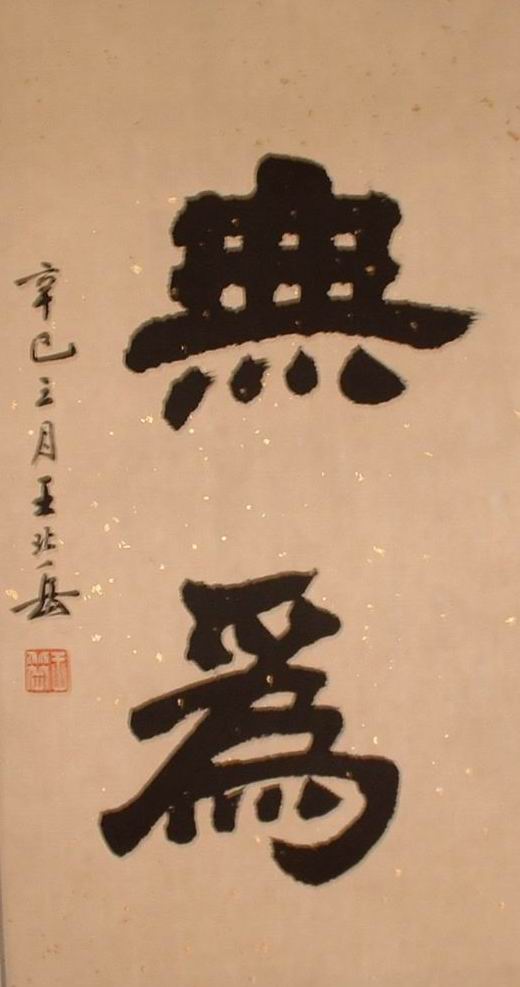 無為
辛巳三月王北岳